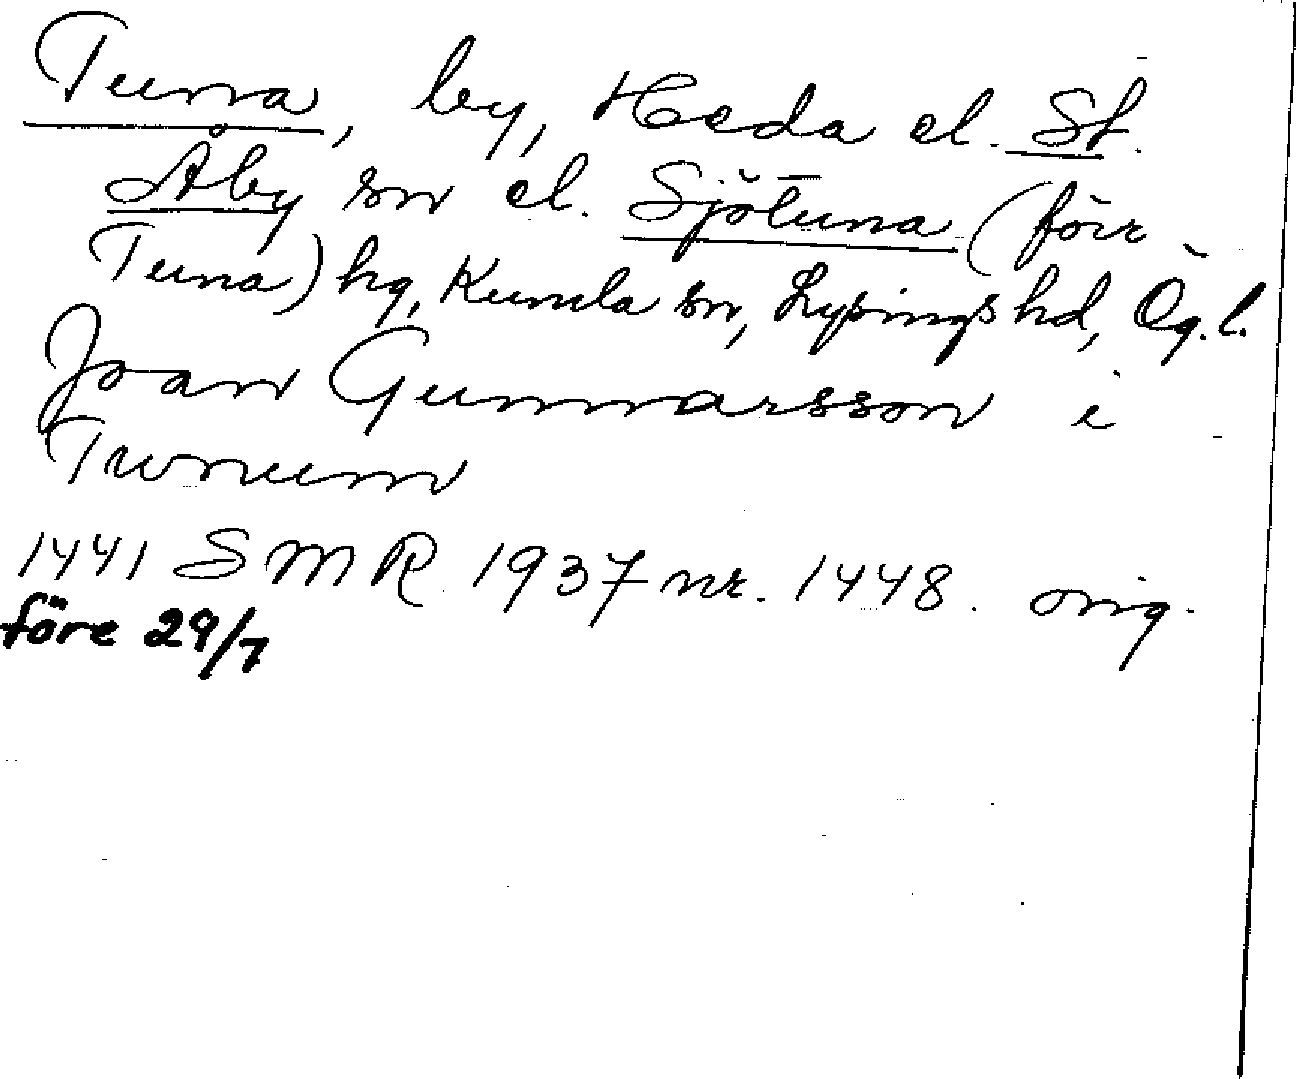 Tuna, by, Heda el. St.
Åby sn el. Sjötuna (förr
Tuna) hg, Kumla sn, Lysings hd, Ög. l.
Joan Gunnarsson i
Twnum
1441 SMR 1937 nr. 1448. orig.
före 29/7